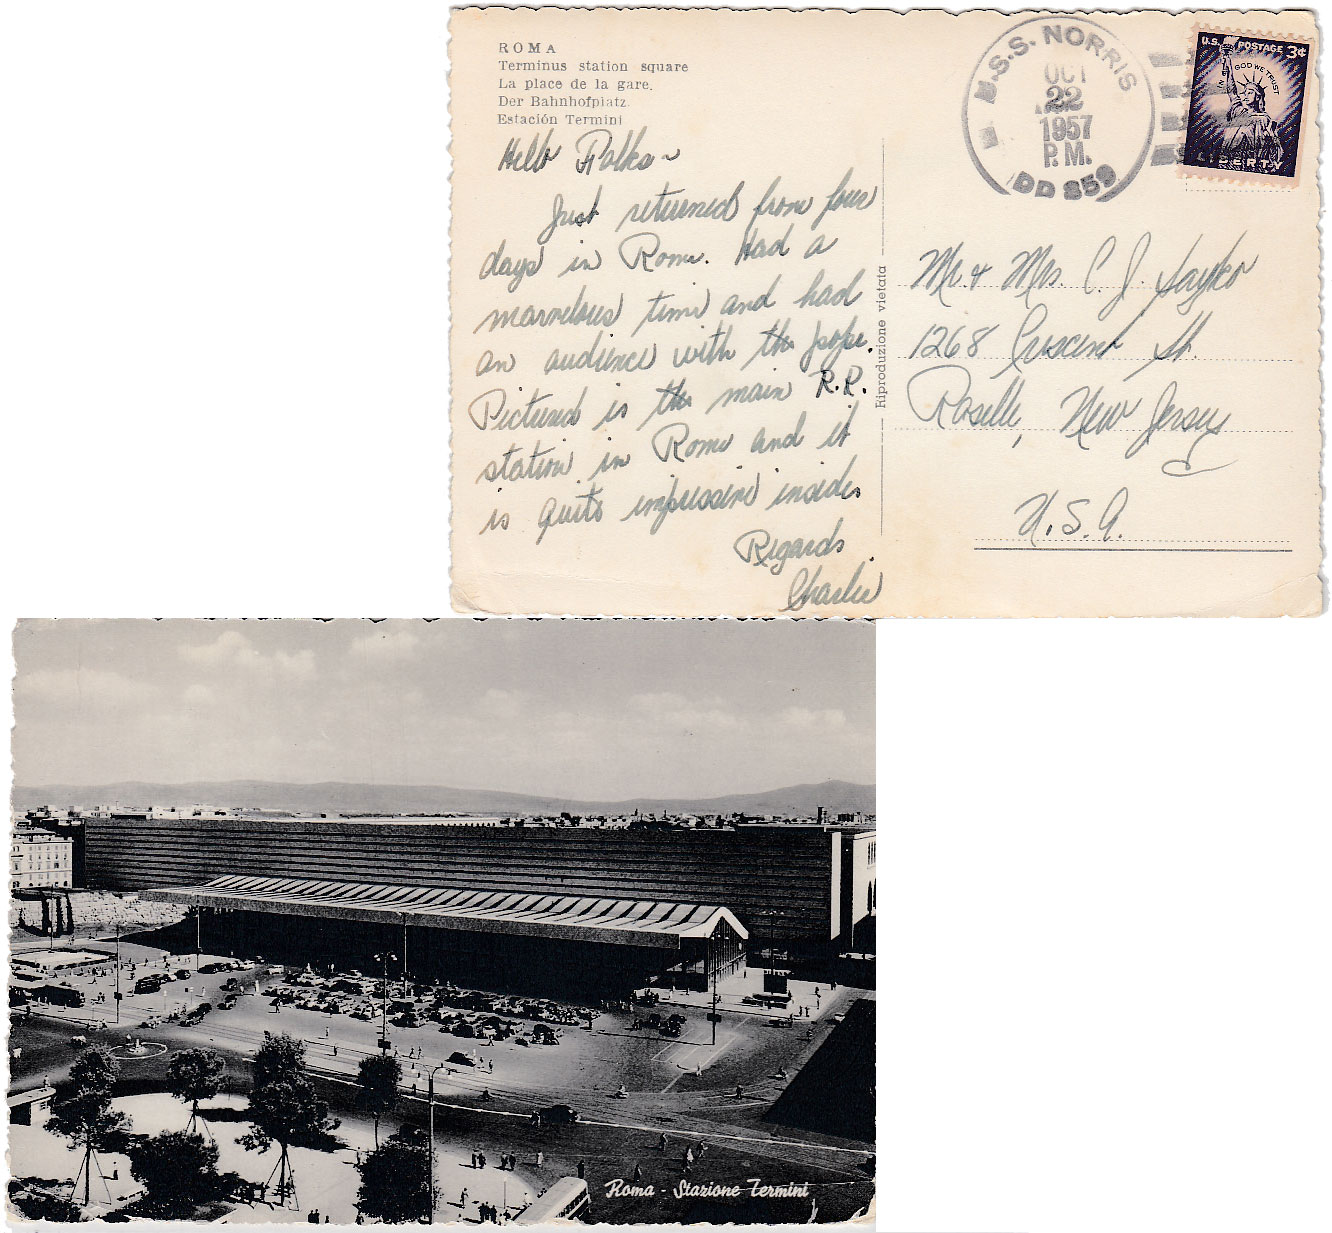 ROMA
Terminus station square
La place de la gare.
Der Bahnhofplatz
Estación Termini
Hello Folks~
Just returned from four
days in Rome. Had a
marvelous time and had
an audience with the pope.
Pictured is the main R.R.
station in Rome and it
is quite impressive inside.
Regards
Charlie
Riproduzione vietata
U.S.S. NORRIS
OCT
22
1957
P.M.
DD 859
U.S. POSTAGE 3¢
IN GOD WE TRUST
LIBERTY
Mr. & Mrs. C. J. Sayko
1268 Crescent St.
Roselle, New Jersey
U.S.A.
Roma - Stazione Termini